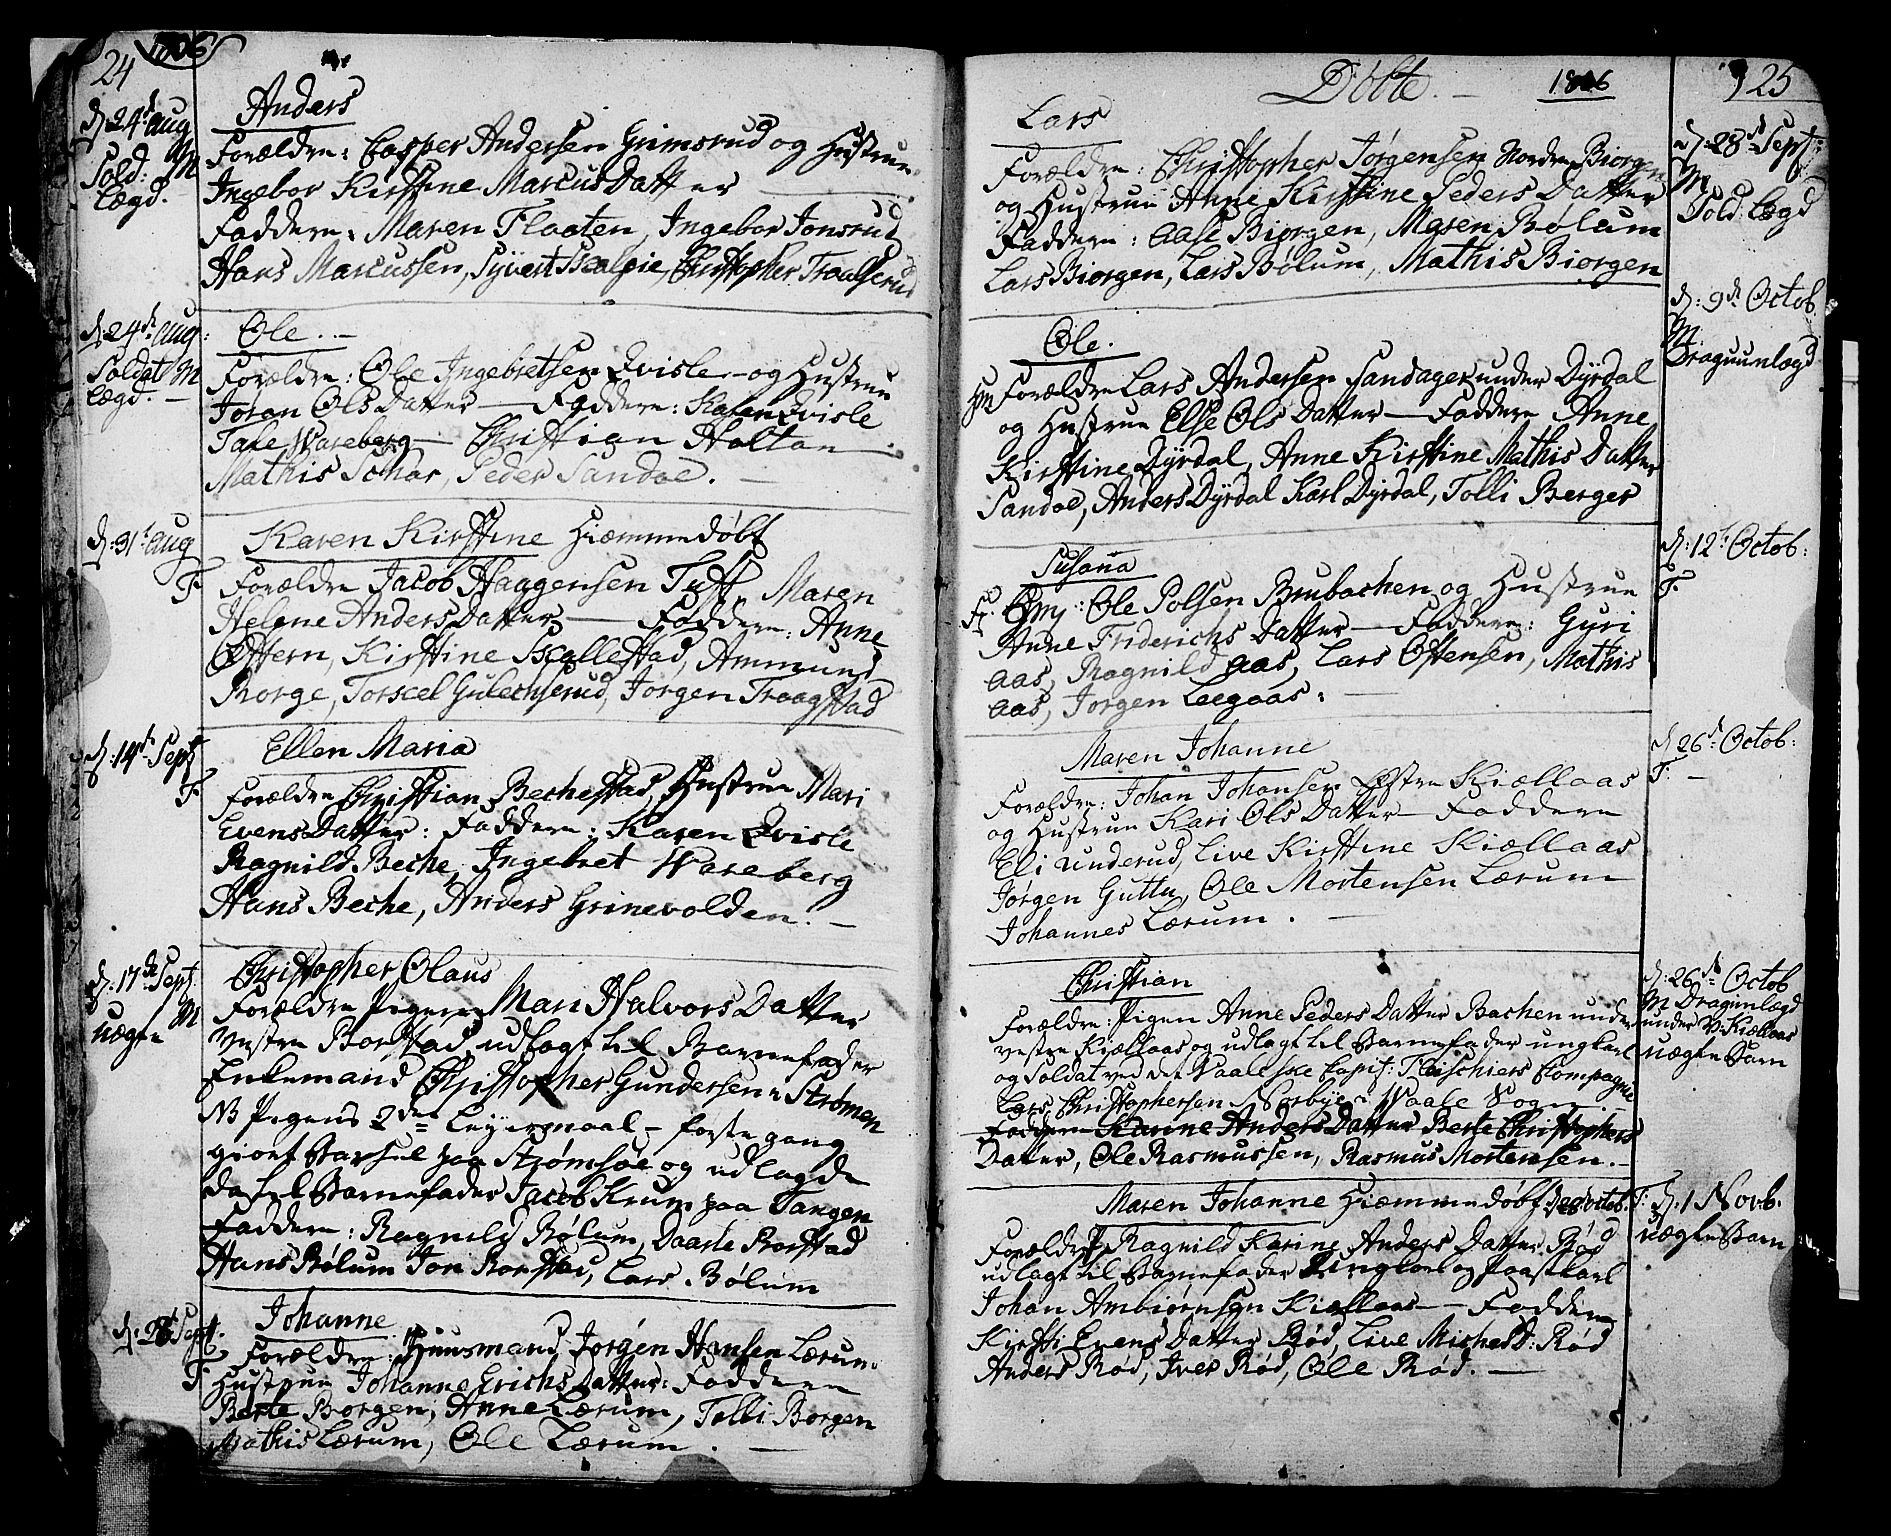 24 1806
d: 24de Aug
Sold: M
Lægd.
Anders
Forældre: Casper Andersen Grimsrud og Hustrue
Ingebor Kirstine Marcus Datter
Faddere: Maren Flaaten, Ingebor Jonsrud
Hans Marcussen, Syvert Scalpie, Christopher Tranlserud
d: 24de Aug:
Soldat M
Lægd.
Ole.
Forældre: Ole Ingebretsen Qvisle og Hustrue
Joran Ols Datter — Faddere: Karen Qvisle
Wareberg — Christian Holtan
Mathis Schar, Peder Sandoe.
d: 31te Aug
F.
Karen Kirstine Hiæmmedøbt
Forældre Jacob Haagensen Tuft, Maren
Helene Anders Datter — Faddere: Anne
Offern, Kirstine Scallestad, Ammund
Borge, Torscel Gulechserud, Jørgen Traagstad
d: 14de Sept
F.
Ellen Maria
Forældre Christian Bechestad, Hustrue Mari
Evens Datter: Faddere: Karen Qvisle
Ragnild Beche, Ingebret Wareberg
Hans Beche, Anders Grinevolden.
d: 17de Sept.
M
uægte
Christopher Olaus
Forældre Pigen Mari Halvors Datter
Vestre Borstad udlagt til Barnefader
Enkemand Christopher Gundersen Strømen
NB Pigens 2den Leyermaal — første gang
giort Barsel paa Strømsøe og udlagde
da til Barnefader Jacob Krum paa Tangen
Faddere: Ragnild Bølum, Daarte Borstad
Hans Bølum Jon Borstad, Lars Bølum
d: 28 Sept.
F
Johanne
Forældre: Huusmand Jørgen Hansen Lærum
Hustrue Johanne Erichs Datter: Faddere
Berte Borgen, Anne Lærum, Tolli Borgen
Mathis Lærum, Ole Lærum.
Døbte. 1806 25
Lars
Forældre: Christopher Jørgensen Nordre Biorgen
og Hustrue Anne Kirstine Peders Datter
Faddere: Aase Biorgen, Maren Bølum
Lars Biorgen, Lars Bølum, Mathis Biorgen
d: 28de Sept:
M
Sold: Lægd
Ole.
Hm Forældre Lars Andersen Sandager under Dyrdal
og Hustrue Else Ols Datter — Faddere Anne
Kirstine Dyrdal, Anne Kirstine Mathis Datter
Sandoe, Anders Dyrdal Karl Dyrdal, Tolli Berger
d: 9de Octob
M
Dragounlægd
Susana
Ole Polsen Brubachen og Hustrue
Anne Friderichs Datter — Faddere: Guri
Aas, Ragnild Aas, Lars Ostensen, Mathis
Aas, Jørgen Leegaas:
d: 12te Octob:
F.
Maren Johanne
Forældre: Johan Johansen Østre Kiællaas
og Hustrue Kari Ols Datter — Faddere
Eli Underud, Live Kirstine Kiællaas
Jørgen Guttu, Ole Mortensen Lærum
Johannes Lærum.
d: 26de Octob:
F.
Christian
Forældre: Pigen Anne Peders Datter Bachen under
Vestre Kiællaas og udlagt til Barnefader ungkarl
og Soldat ved det Vaalsche Capit: Fleischiers Compagnie
Lars Christophersen Norbye i Waale Sogn
Faddere Karine Anders Datter Berte Christophers
Datter, Ole Rasmussen, Rasmus Mortensen.
d: 26de Octob
M Dragunlægd
under V: Kiællaas
uægte Barn
Maren Johanne Hiæmmedøbt d 28 Octob.
Forældre P. Ragnild Karine Anders Datter Rød
udlagt til Barnefader Ungkarl og
Johan Ambiørnsen Kiællaas — Faddere
Kirsti Evens Datter Rød, Live Michels D: Rød
Anders Rød, Iver Rød, Ole Rød.
F: d: 1 Novb.
uægte Barn